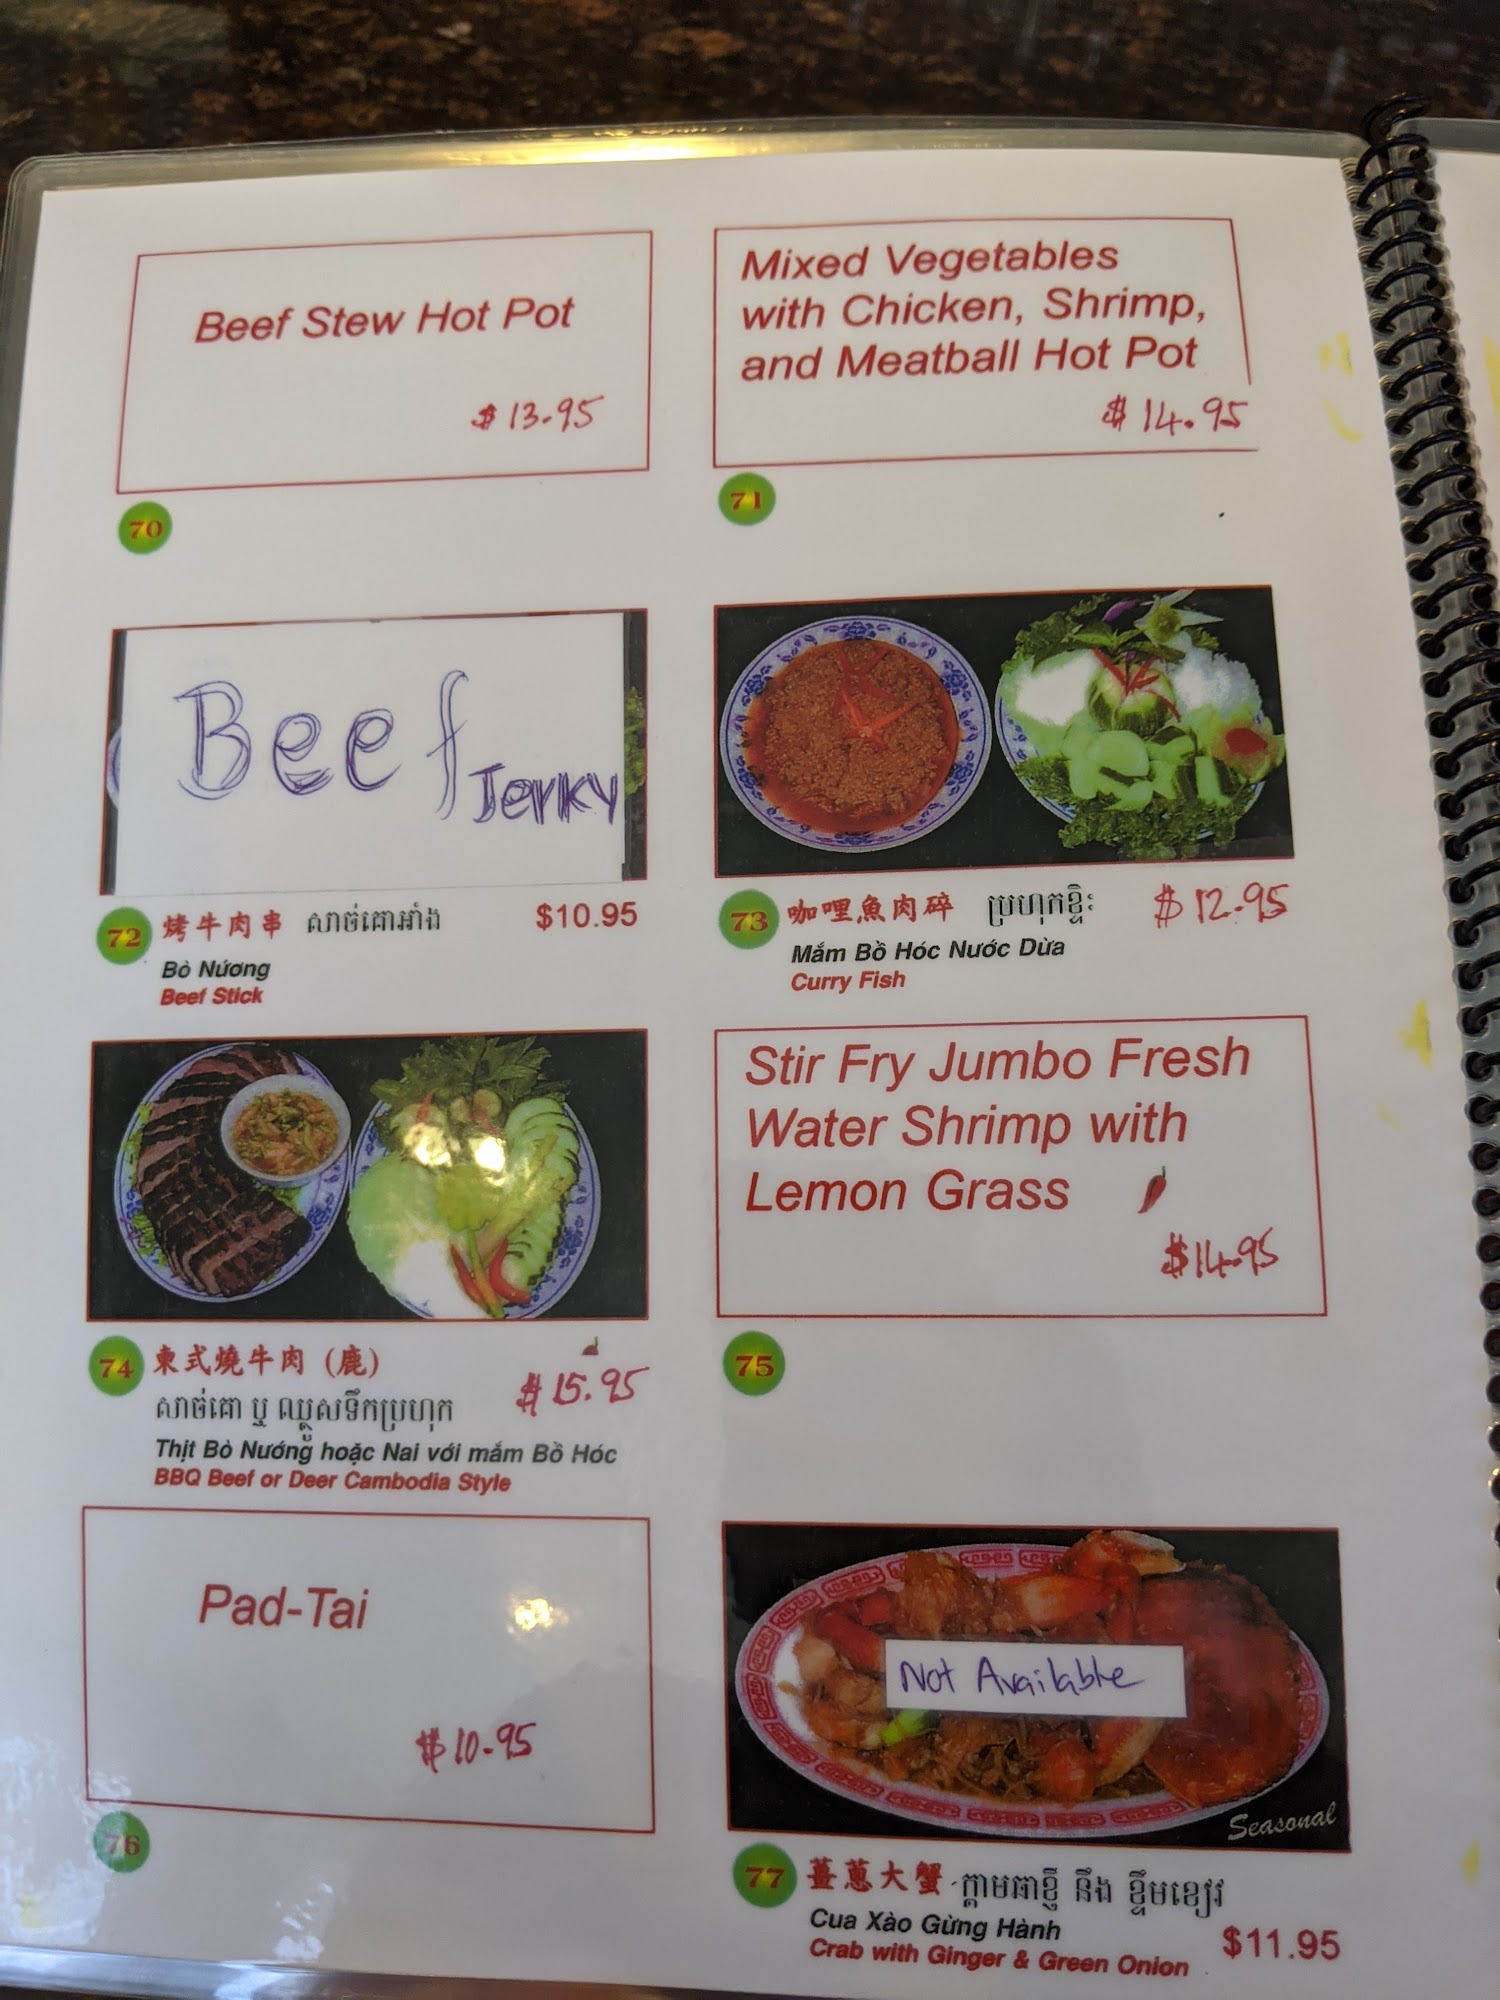 Beef Stew Hot Pot
$ 13.95
70
Mixed Vegetables
with Chicken, Shrimp,
and Meatball Hot Pot
$ 14.95
71
Beef
Jerky
72 烤牛肉串 សាច់គោអាំង $10.95
Bò Nướng
Beef Stick
73 咖哩魚肉碎 ប្រហុកខ្ទិះ $ 12.95
Mắm Bồ Hóc Nước Dừa
Curry Fish
74 柬式燒牛肉 (鹿)
សាច់គោ ឬ ឈ្លូសទឹកប្រហុក $ 15.95
Thịt Bò Nướng hoặc Nai với mắm Bồ Hóc
BBQ Beef or Deer Cambodia Style
Stir Fry Jumbo Fresh
Water Shrimp with
Lemon Grass
$14.95
75
Pad-Tai
$ 10.95
76
Not Available
Seasonal
77 薑蔥大蟹 ក្ដាមឆាខ្ញី នឹង ខ្ទឹមខៀវ
Cua Xào Gừng Hành
Crab with Ginger & Green Onion $11.95